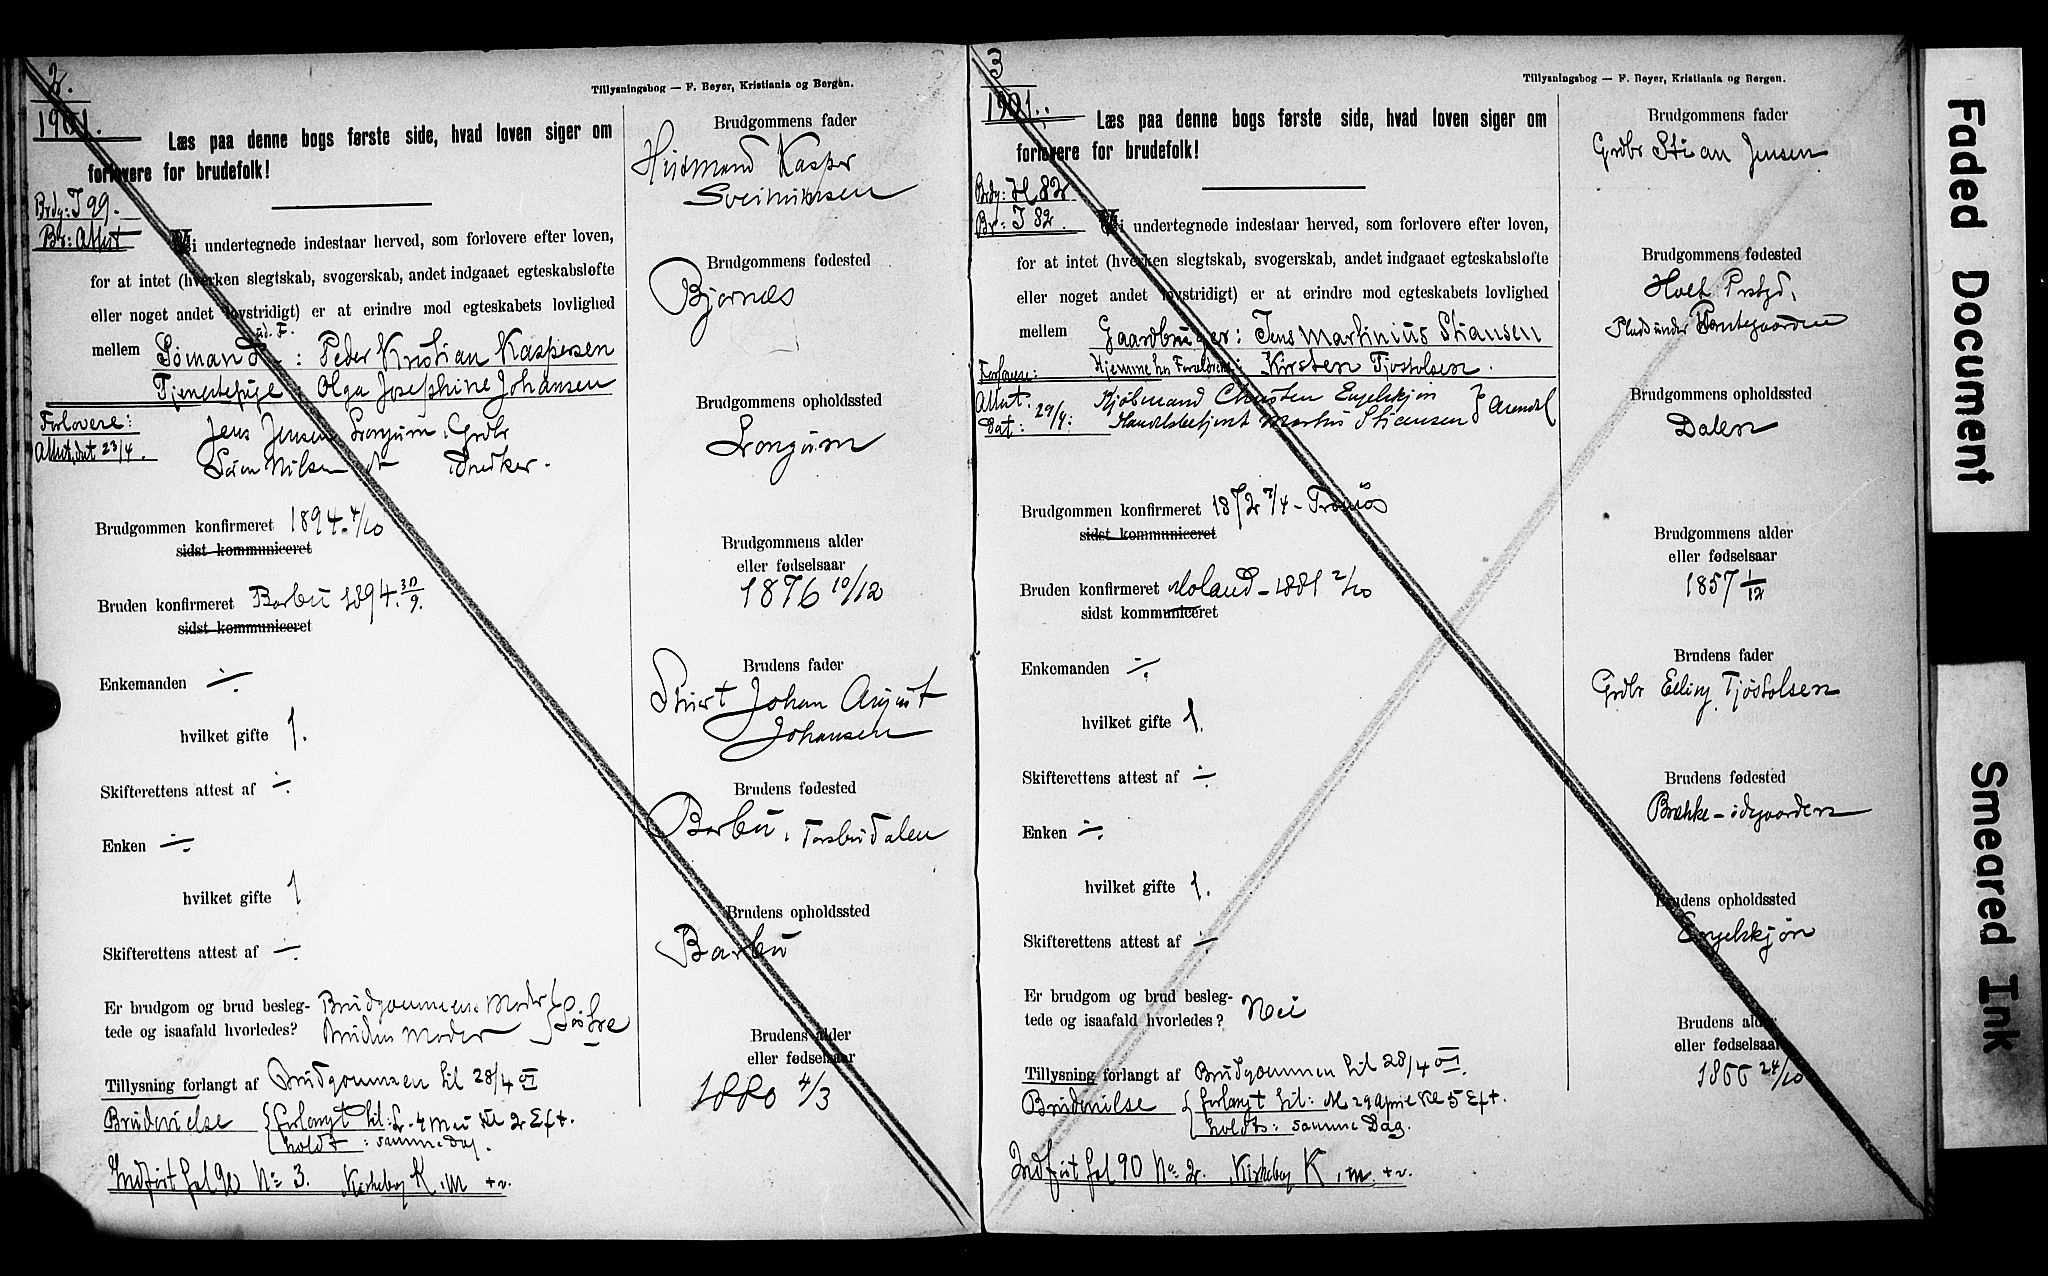 2.
1901.
Tillysningsbog — F. Beyer, Kristiania og Bergen.
Læs paa denne bogs første side, hvad loven siger om
forlovere for brudefolk!
Brdg: I 99.
Br: Attest
Vi undertegnede indestaar herved, som forlovere efter loven,
for at intet (hverken slegtskab, svogerskab, andet indgaaet egteskabsløfte
eller noget andet lovstridigt) er at erindre mod egteskabets lovlighed
mellem Sømand : Peder Kristian Kaspersen
Tjenestepige : Olga Josephine Johansen
Forlovere:
Attest. dat 23/4.
Jens Jensen Longum, Grdbr
Søren Nilsen Snedker.
Brudgommen konfirmeret 1894. 4/10
sidst kommuniceret
Bruden konfirmeret Barbu 1894. 30/9.
sidst kommuniceret
Enkemanden ÷
hvilket gifte 1.
Skifterettens attest af ÷
Enken ÷
hvilket gifte 1
Skifterettens attest af ÷
Er brudgom og brud besleg-
tede og isaafald hvorledes? Brudgommens Moder
Brudens Moder
Tillysning forlangt af Brudgommen til 28/4 01
Brudevielse forlangt til: L. 4 Mai Kl 2 Eft.
holdt : samme Dag.
Indført fol 90 No 3. Kirkebog K. m. + v.
Brudgommens fader
Husmand Kasper
Brudgommens fødested
Bjørnæs
Brudgommens opholdssted
Longum
Brudgommens alder
eller fødselsaar
1876 10/12
Brudens fader
Johan August
Johansen
Brudens fødested
Barbu, Torsbudalen
Brudens opholdssted
Barbu
Brudens alder
eller fødselsaar
1880 4/3
3
1901.
Tillysningsbog — F. Beyer, Kristiania og Bergen.
Læs paa denne bogs første side, hvad loven siger om
forlovere for brudefolk!
Brdg: H 82
Br: I 82.
Vi undertegnede indestaar herved, som forlovere efter loven,
for at intet (hverken slegtskab, svogerskab, andet indgaaet egteskabsløfte
eller noget andet lovstridigt) er at erindre mod egteskabets lovlighed
mellem Gaardbruger: Jens Martinius Stiansen
Hjemme hos Forældrene: Kirsten Tjostolsen.
Forlovere:
Attest.
Dat: 29/4:
Kjøbmand Christen Engelskjøn
Handelsbetjent Martin Stiansen } Arendal
Brudgommen konfirmeret 1872 7/4 - Tromøs
sidst kommuniceret
Bruden konfirmeret Moland - 1881 2/10
sidst kommuniceret
Enkemanden ÷
hvilket gifte 1.
Skifterettens attest af ÷
Enken ÷
hvilket gifte 1.
Skifterettens attest af ÷
Er brudgom og brud besleg-
tede og isaafald hvorledes? Nei
Tillysning forlangt af Brudgommen til 28/4 01.
Brudevielse forlangt til: M. 29 April Kl 5 Eft.
holdts: samme Dag.
Indført fol 90 No 2. Kirkebog K. m. + v.
Brudgommens fader
Grdbr Stian Jensen
Brudgommens fødested
Holt Prstgd,
Plads under
Brudgommens opholdssted
Dalen
Brudgommens alder
eller fødselsaar
1857 1/12
Brudens fader
Grdbr Elling Tjøstolsen
Brudens fødested
Brække - ødegaarden
Brudens opholdssted
Engelskjøn
Brudens alder
eller fødselsaar
1866 24/10
Faded Document
Smeared Ink